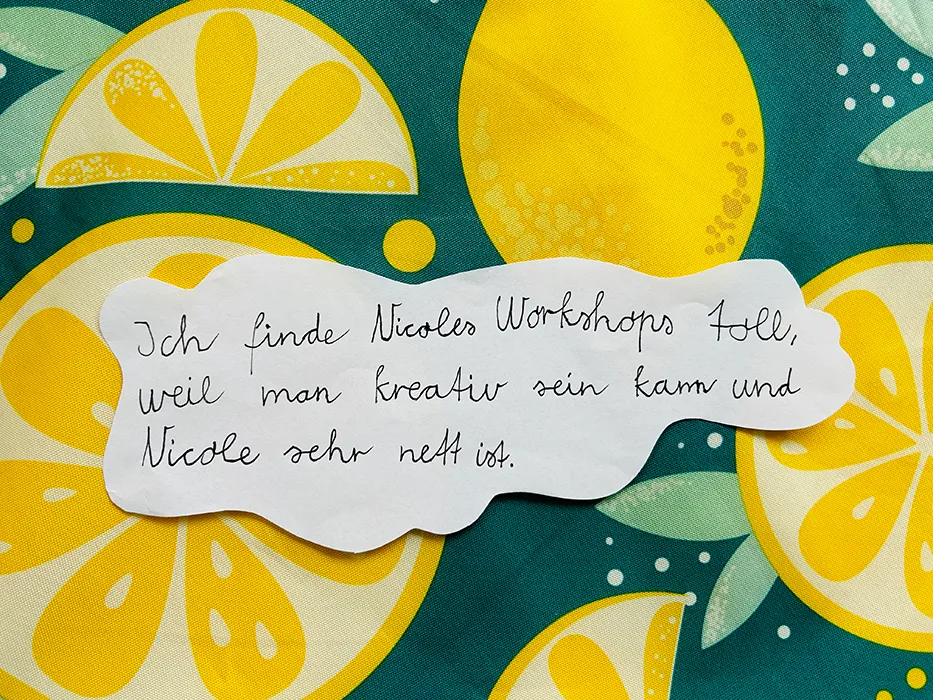 Ich finde Nicoles Workshops toll,
weil man kreativ sein kann und
Nicole sehr nett ist.